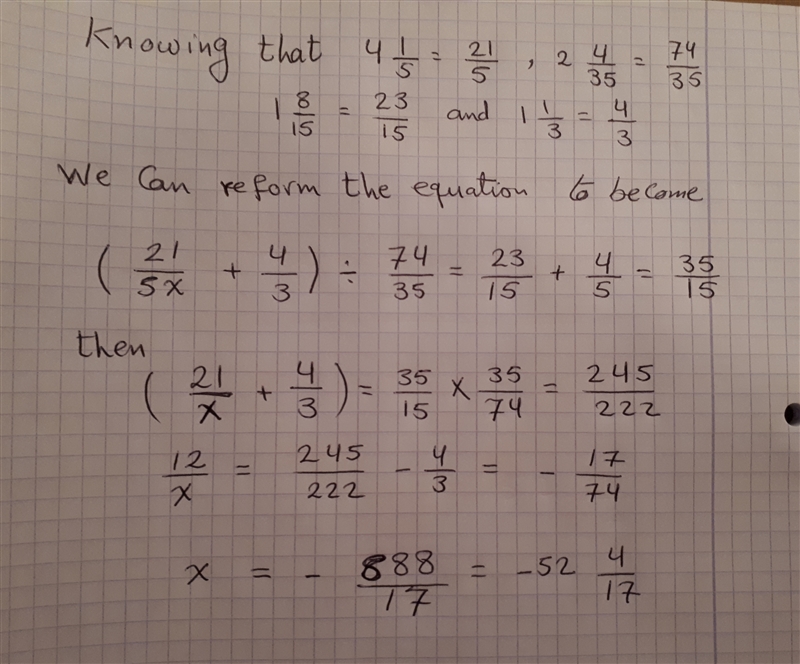 Knowing that 4 1/5 = 21/5 , 2 4/35 = 74/35
1 8/15 = 23/15 and 1 1/3 = 4/3
We Can reform the equation to become
( 21/5x + 4/3 ) ÷ 74/35 = 23/15 + 4/5 = 35/15
then
( 21/x + 4/3 ) = 35/15 × 35/74 = 245/222
12/x = 245/222 - 4/3 = - 17/74
x = - 888/17 = -52 4/17